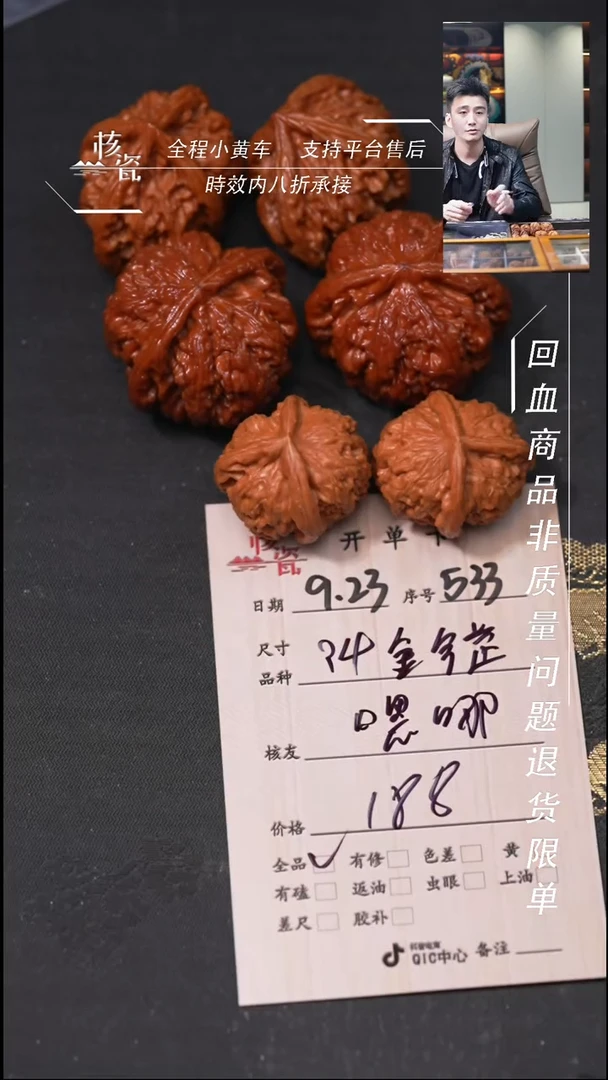 核瓷
全程小黄车 支持平台售后
時效内八折承接
回血商品非质量问题退货限单
核瓷
开单卡
日期 9.23 序号 533
尺寸
品种
核友 嗯哪
价格 188
全品 ✓ 有修 色差 黄
有磕 返油 虫眼 上油
差尺 胶补
抖音电商
QIC中心 备注